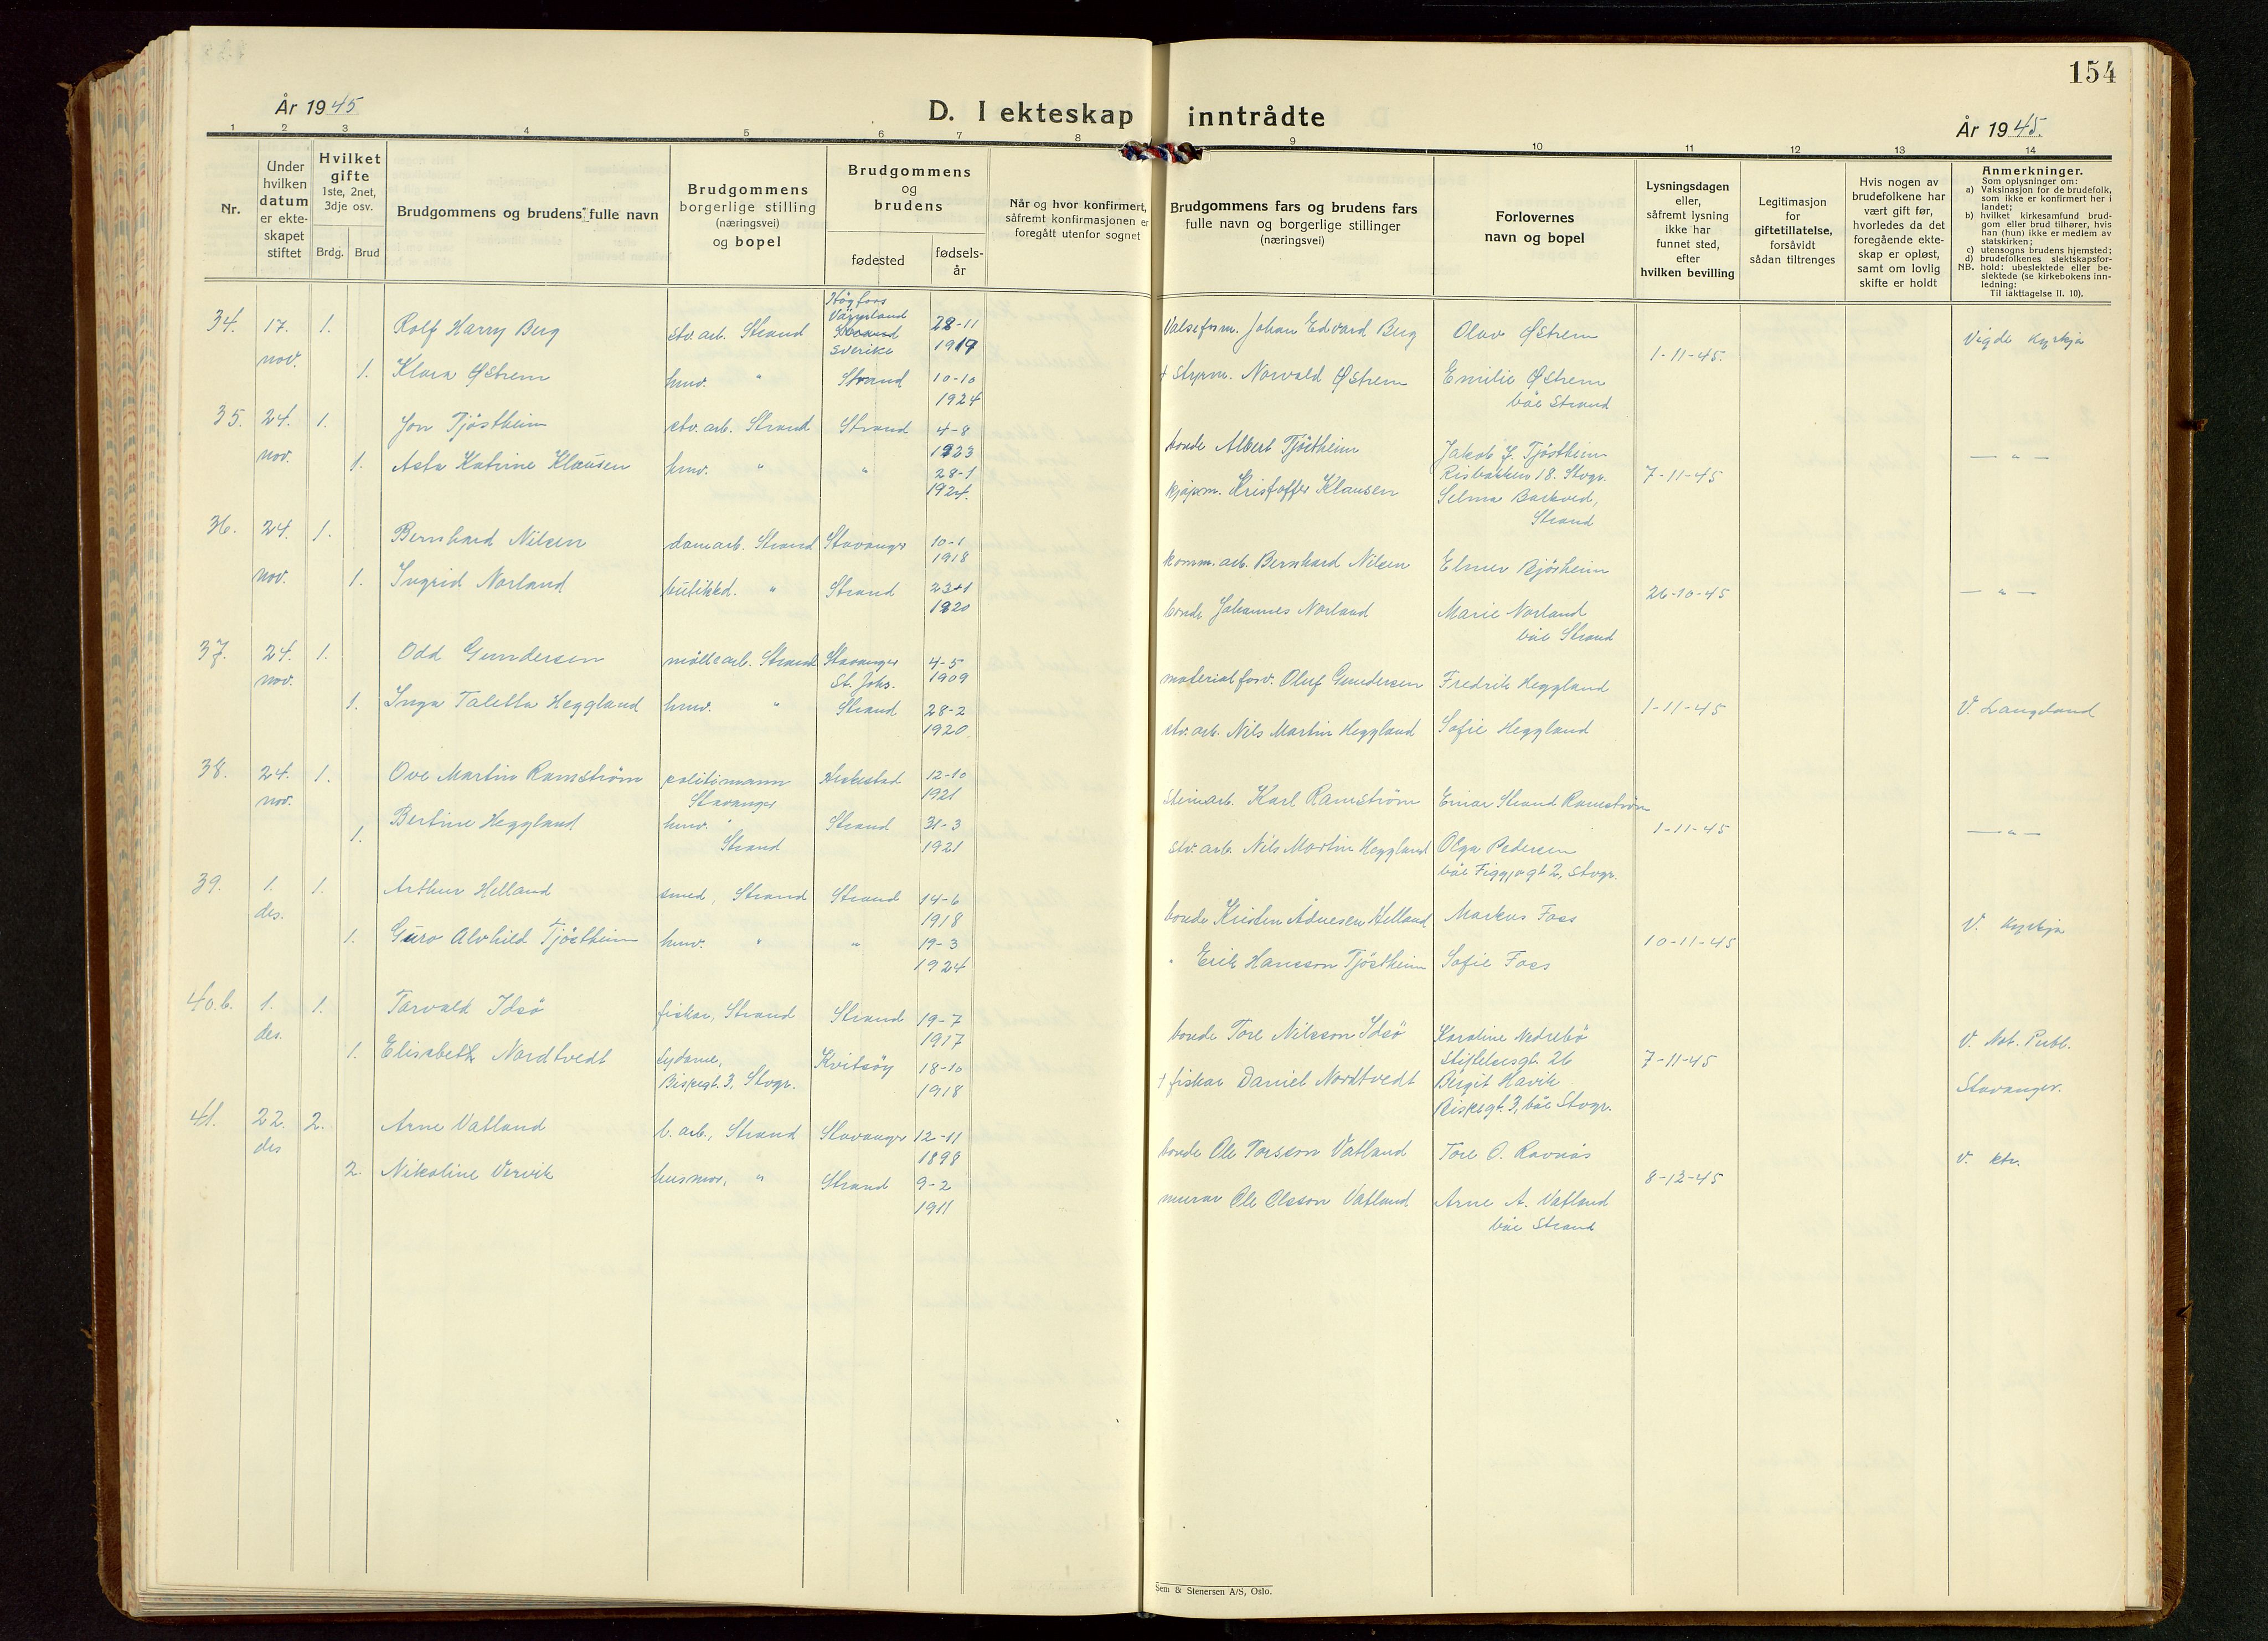 154
År 1945
D. I ekteskap inntrådte
År 1945.
1 2 3 4 5 6 7 8 9 10 11 12 13 14
Nr.
Under
hvilken
datum
er ekte-
skapet
stiftet
Hvilket
gifte
1ste, 2net,
3dje osv.
Brdg. Brud
Brudgommens og brudens fulle navn
Brudgommens
borgerlige stilling
(næringsvei)
og bopel
Brudgommens
og
brudens
fødested
fødsels-
år
Når og hvor konfirmert,
såfremt konfirmasjonen er
foregått utenfor sognet
Brudgommens fars og brudens fars
fulle navn og borgerlige stillinger
(næringsvei)
Forlovernes
navn og bopel
Lysningsdagen
eller,
såfremt lysning
ikke har
funnet sted,
efter
hvilken bevilling
Legitimasjon
for
giftetillatelse,
forsåvidt
sådan tiltrenges
Hvis nogen av
brudefolkene har
vært gift før,
hvorledes da det
foregående ekte-
skap er opløst,
samt om lovlig
skifte er holdt
Anmerkninger.
Som oplysninger om:
a) Vaksinasjon for de brudefolk,
som ikke er konfirmert her i
landet;
b) hvilket kirkesamfund brud-
gom eller brud tilhører, hvis
han (hun) ikke er medlem av
statskirken;
c) utensogns brudens hjemsted;
d) brudefolkenes slektskapsfor-
NB. hold: ubeslektede eller be-
slektede (se kirkebokens inn-
ledning:
Til iakttagelse II. 10).
34. 17. nov. 1. Rolf Harry Berg stv. arb. Strand Högfors Värmland Sverike 28-11 1919 Valseform. Johan Edvard Berg Olav Østrem 1-11-45. Vigde kyrkja
1. Klara Østrem hmv. " Strand 10-10 1924 + Styrm. Norvald Østrem Emilie Østrem
båe Strand
35. 24. nov. 1. Jon Tjøstheim stv. arb. Strand Strand 4-8 1923 bonde Albert Tjøstheim Jakob J. Tjøstheim
Risbakken 18. Stvgr. 7-11-45 — " —
1. Asta Katrine Klausen hmv. " " 28-1 1924. kjøpm. Kristoffer Klausen Selma Barkved,
Strand
36. 24. nov. 1. Bernhard Nilsen damarb. Strand Stavanger 10-1 1918 komm. arb. Bernhard Nilsen Elmer Bjøsheim 26-10-45 — " —
1. Ingrid Norland butikkd. " Strand 1920 bonde Johannes Norland Marie Norland
båe Strand
37. 24. nov. 1. Odd Gundersen møllearb. Strand Stavanger St. Johs. 4-5 1909 materialforv. Oluf Gundersen Fredrik Heggland 1-11-45 V. Langeland
1. Inga Taletta Heggland hmv. " Strand 28-2 1920. stv. arb. Nils Martin Heggland Sofie Heggland
38. 24. nov. 1. Ove Martin Ramström politimann Stavanger 12-10 1921 Steinarb. Karl Ramström Einar Strand Ramström 1-11-45 — " —
1. Bertine Heggland hmv. Strand Strand 31-3 1921 stv. arb. Nils Martin Heggland Olga Pedersen
båe Figgjogt 2, Stvgr.
39. 1. des. 1. Arthur Helland smed, Strand Strand 14-6 1918 bonde Kristen Adnesen Helland Markus Foss 10-11-45 V. Kyrkja
1. Guro Alvhild Tjøstheim hmv. " " 19-3 1924 " Erik Hansson Tjøstheim Sofie Foss
40.b. 1. des. 1. Torvald Idsø fiskar, Strand Strand 19-7 1917 bonde Tore Nilsson Idsø Karoline Nedrebø
Stiftelsesgt. 26 7-11-45 V. Not. Publ. Stavanger.
1. Elisabeth Nordtvedt sydame, Bispegt. 3, Stvgr. Kvitsøy 18-10 1918 + fiskar Daniel Nordtvedt Bergit Havik
Bispegt. 3, båe Stvgr.
41. 22. des 2. Arne Vatland b. arb., Strand Stavanger 12-11 1898 bonde Ole Torsson Vatland Tore O. Ravnås 8-12-45 V. ktr.
2. Nikoline Vervik husmor, " Strand 9-2 1911 murar Ole Olsson Vatland Arne A. Vatland
båe Strand
Sem & Stenersen A/S, Oslo.